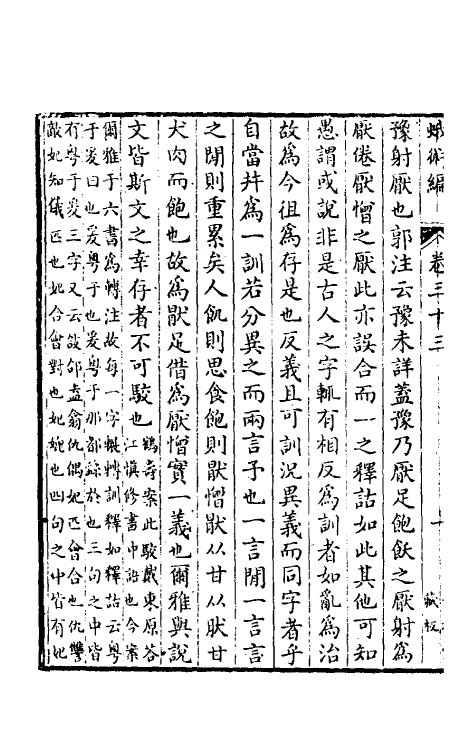 蛾術編 卷三十三
豫射厭也郭注云豫未詳蓋豫乃厭足飽飫之厭射為
厭倦厭憎之厭此亦誤合而一之釋詁如此其他可知
愚謂或說非是古人之字輒有相反為訓者如亂為治
故為今徂為存是也反義且可訓況異義而同字者乎
自當幷為一訓若分異之而兩言予也一言閒一言言
之閒則重累矣人飢則思食飽則猒憎猒从甘从肰甘
犬肉而飽也故為猒足借為厭憎實一義也爾雅與說
文皆斯文之幸存者不可駮也
鶴壽案此駮戴東原答
江慎修書中語也今案
爾雅于六書為轉注故每一字輾轉訓釋如釋詁云粤
于爰曰也爰粤于也爰粤于那都繇於也三句之中皆
有粤于爰三字又云敆郃盍翕仇偶妃匹會合也仇讐
敵妃知儀匹也妃合會對也妃媲也四句之中皆有妃
藏板